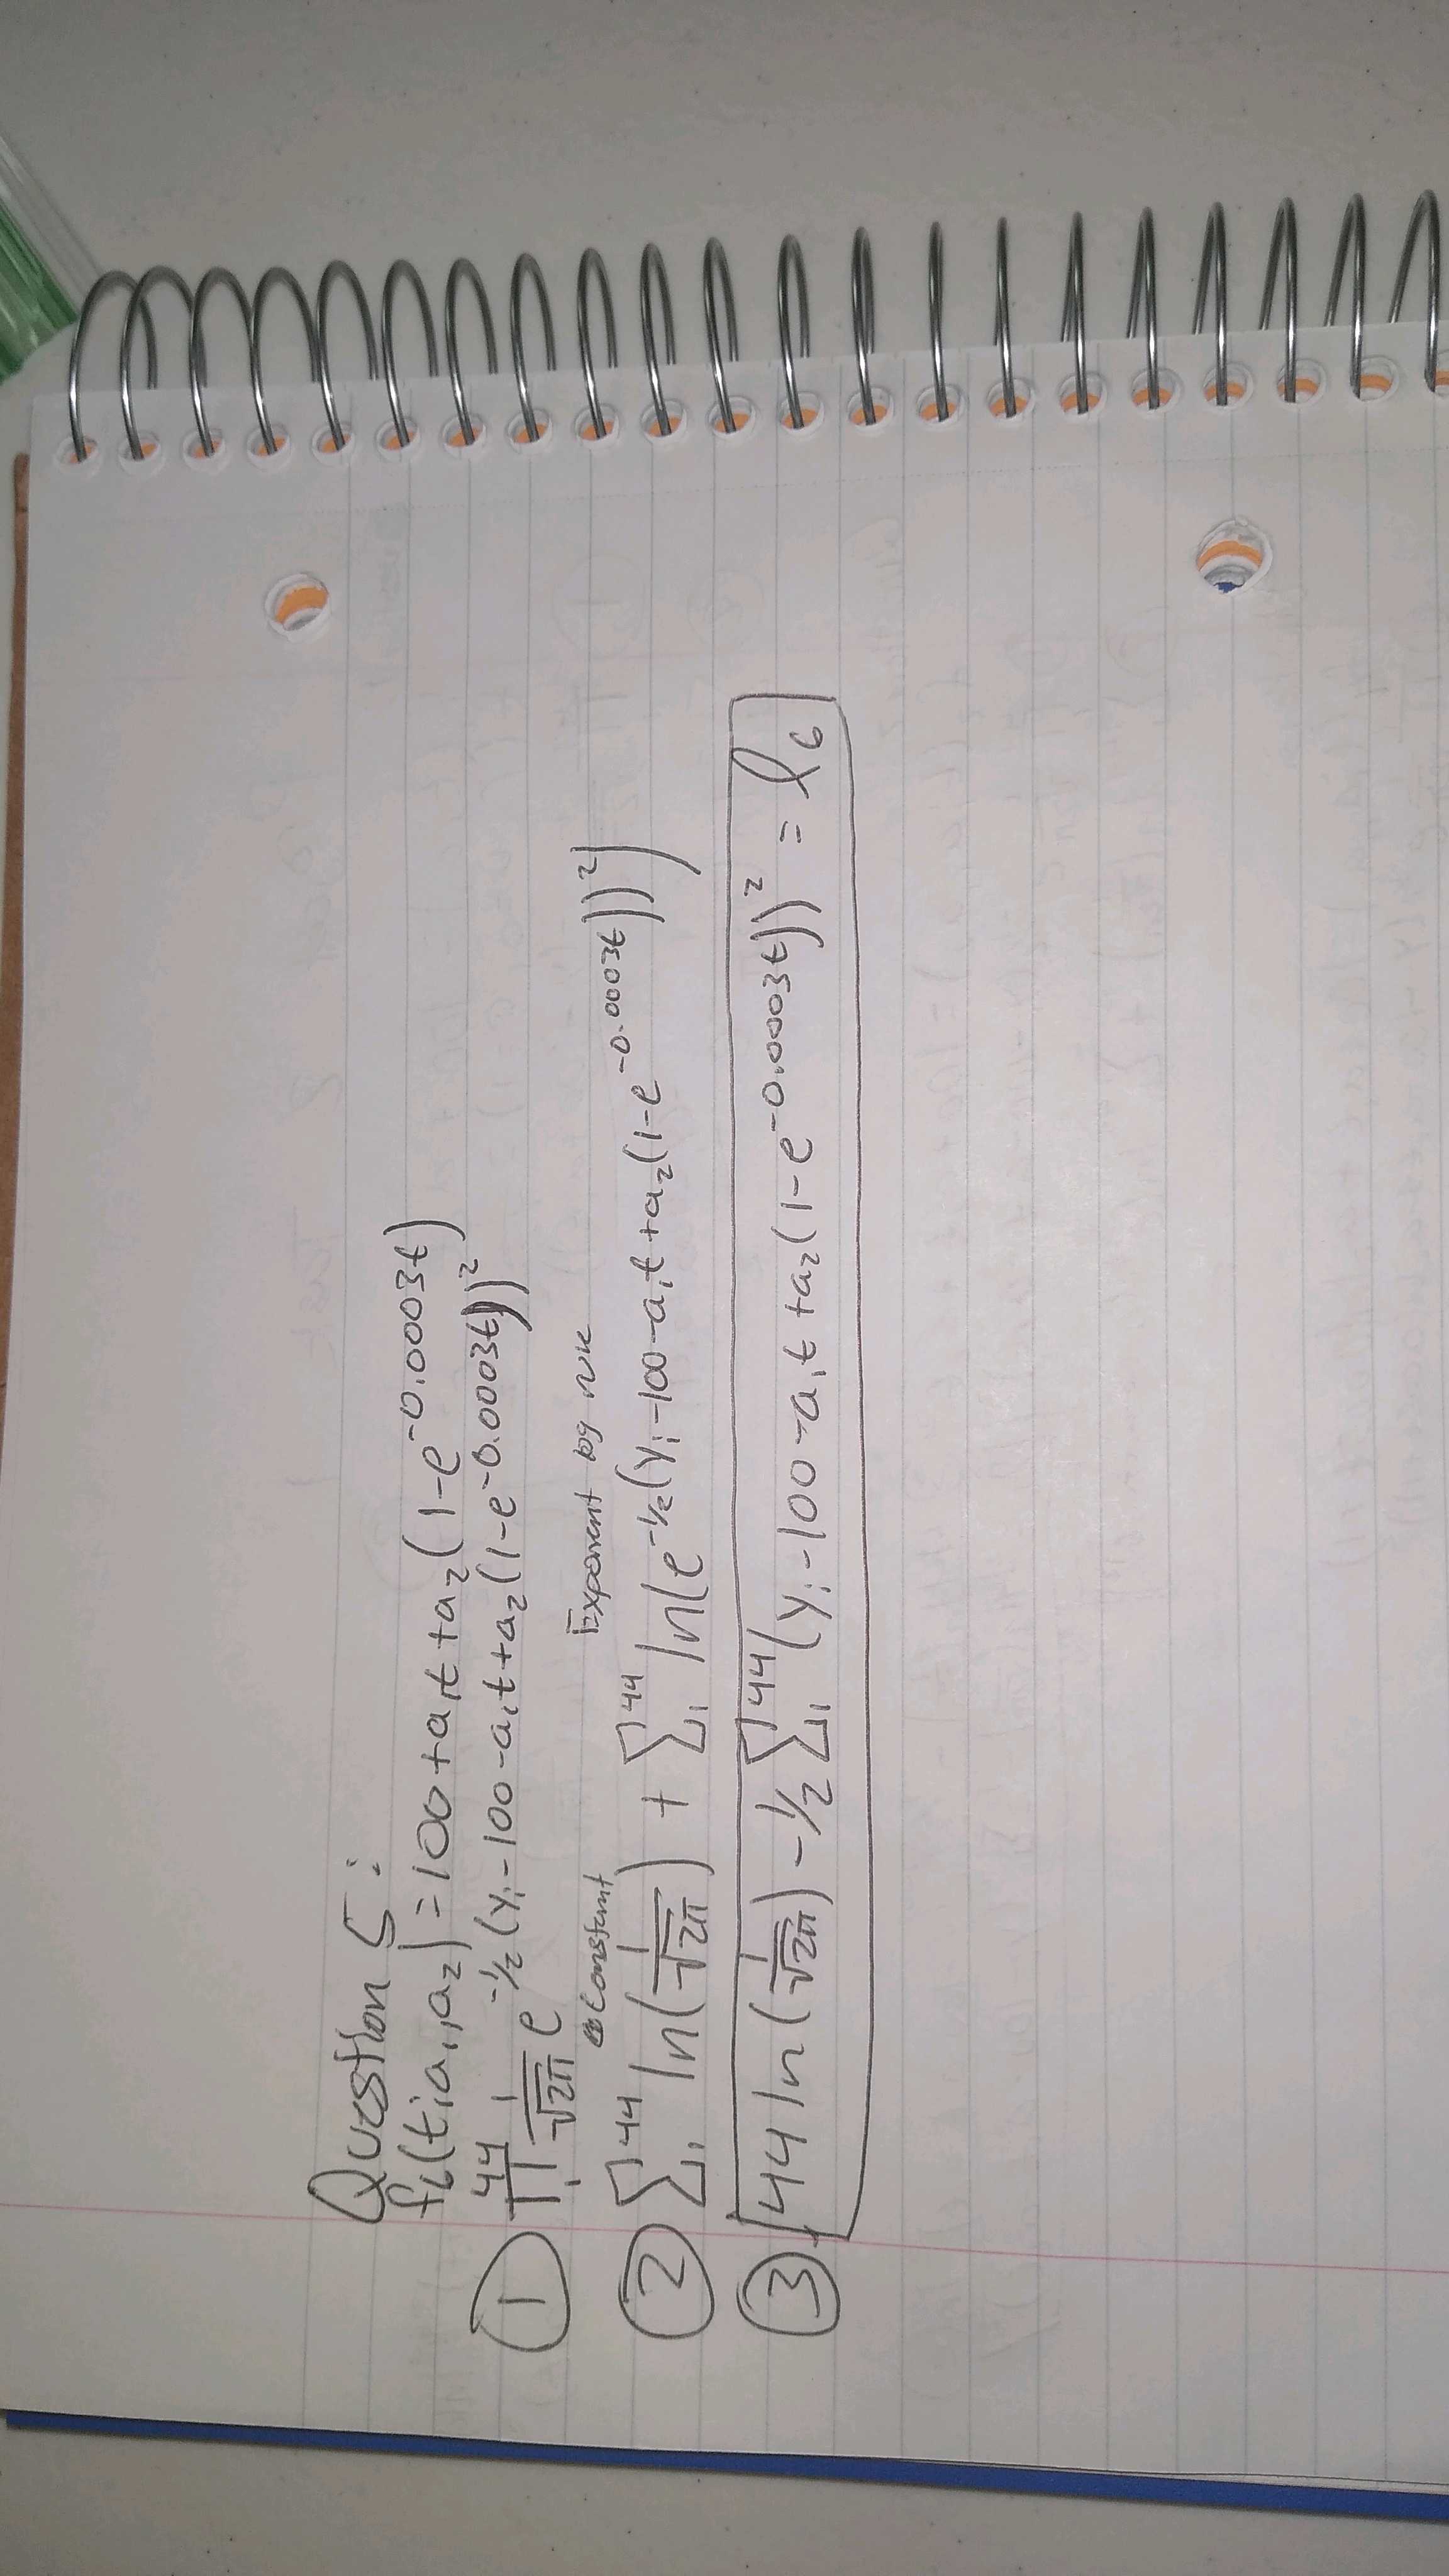 Question 5:
f₆(t; a₁, a₂) = 100 + a₁t + a₂(1 - e^-0.0003t)
① ∏₁⁴⁴ 1/√2π e^-1/2 (yᵢ - 100 - a₁t + a₂(1 - e^-0.0003t))²
Constant Exponent log rule
② ∑₁⁴⁴ ln(1/√2π) + ∑₁⁴⁴ ln(e^-1/2 (yᵢ - 100 - a₁t + a₂(1 - e^-0.0003t))²)
③ 44 ln(1/√2π) - 1/2 ∑₁⁴⁴ (yᵢ - 100 - a₁t + a₂(1 - e^-0.0003t))² = ℓ₆